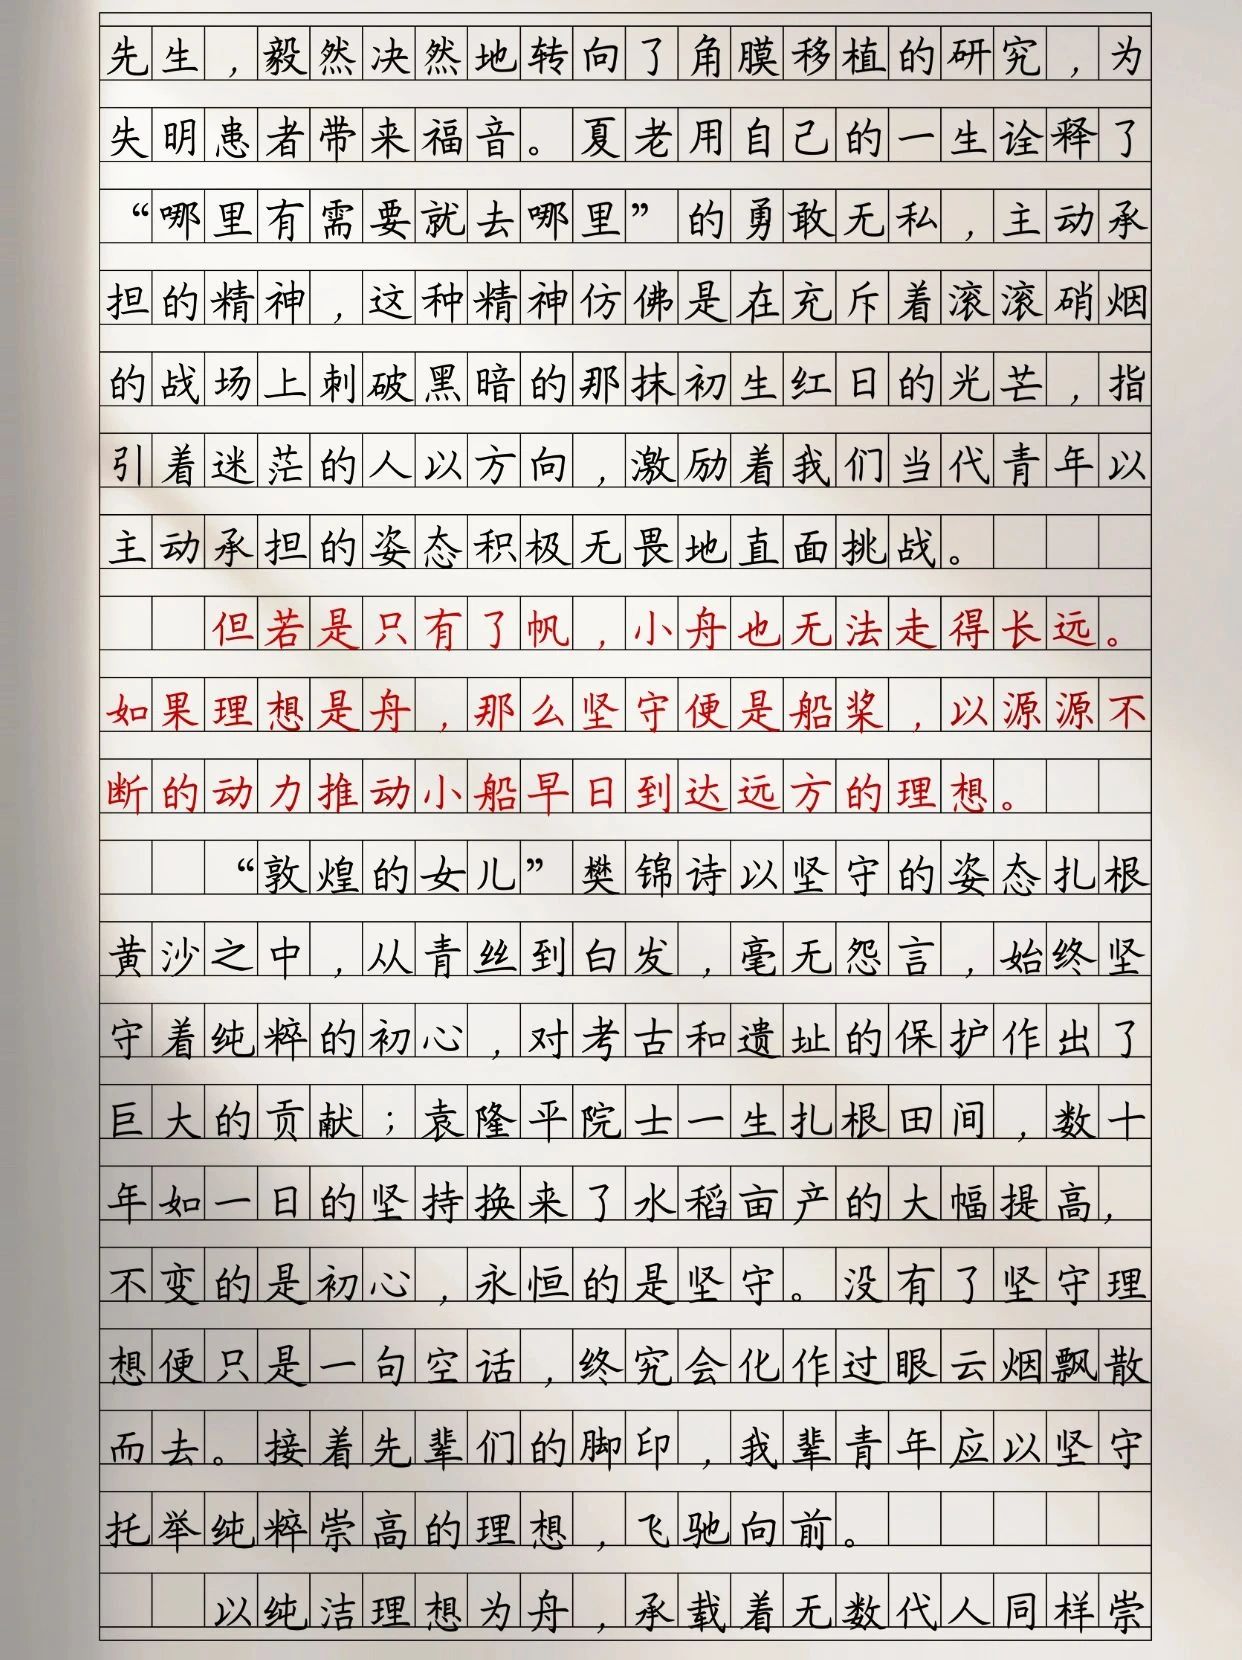 先生,毅然决然地转向了角膜移植的研究,为
失明患者带来福音。夏老用自己的一生诠释了
“哪里有需要就去哪里”的勇敢无私,主动承
担的精神,这种精神仿佛是在充斥着滚滚硝烟
的战场上刺破黑暗的那抹初生红日的光芒,指
引着迷茫的人以方向,激励着我们当代青年以
主动承担的姿态积极无畏地直面挑战。
但若是只有了帆,小舟也无法走得长远。
如果理想是舟,那么坚守便是船桨,以源源不
断的动力推动小船早日到达远方的理想。
“敦煌的女儿”樊锦诗以坚守的姿态扎根
黄沙之中,从青丝到白发,毫无怨言,始终坚
守着纯粹的初心,对考古和遗址的保护作出了
巨大的贡献;袁隆平院士一生扎根田间,数十
年如一日的坚持换来了水稻亩产的大幅提高,
不变的是初心,永恒的是坚守。没有了坚守理
想便只是一句空话,终究会化作过眼云烟飘散
而去。接着先辈们的脚印,我辈青年应以坚守
托举纯粹崇高的理想,飞驰向前。
以纯洁理想为舟,承载着无数代人同样崇